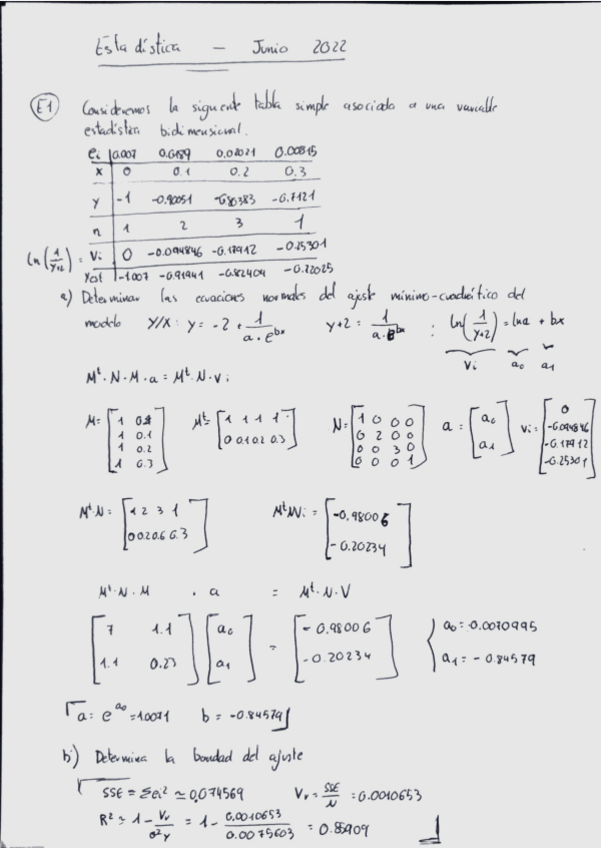 Estadística — Junio 2022
E1 Consideremos la siguiente tabla simple asociada a una variable
estadística bidimensional.
ei | 0.007 0.0189 0.02021 0.00815
x | 0 0.1 0.2 0.3
y | -1 -0.90051 -0.80383 -0.7121
n | 1 2 3 1
ln(1/y+2) = Vi | 0 -0.094846 -0.17912 -0.25301
Yest | -1.007 -0.91941 -0.82404 -0.72025
a) Determinar las ecuaciones normales del ajuste mínimo-cuadrático del
modelo Y/X: y = -2 + 1/a·e^bx y+2 = 1/a·e^bx : ln(1/y+2) = ln a + bx
Vi a0 a1
M^t · N · M · a = M^t · N · vi
M = [1 0 M^t = [1 1 1 1 N = [1 0 0 0 a = [a0 Vi = [0
1 0.1 0 0.1 0.2 0.3] 0 2 0 0 a1] -0.094846
1 0.2 0 0 3 0 -0.17912
1 0.3] 0 0 0 1] -0.25301]
M^t·N = [1 2 3 1 M^t·N·Vi = [-0.98006
0 0.2 0.6 0.3] -0.20234]
M^t·N·M · a = M^t·N·V
[7 1.1 [a0 = [-0.98006 { a0 = 0.0070995
1.1 0.23] a1] -0.20234] a1 = -0.84579
a = e^a0 = 1.0071 b = -0.84579
b) Determina la bondad del ajuste
SSE = Σei² ≃ 0,074569 Vr = SSE/N = 0.0010653
R² ≃ 1 - Vr/σ²y = 1 - 0.0010653/0.0075603 = 0.85909